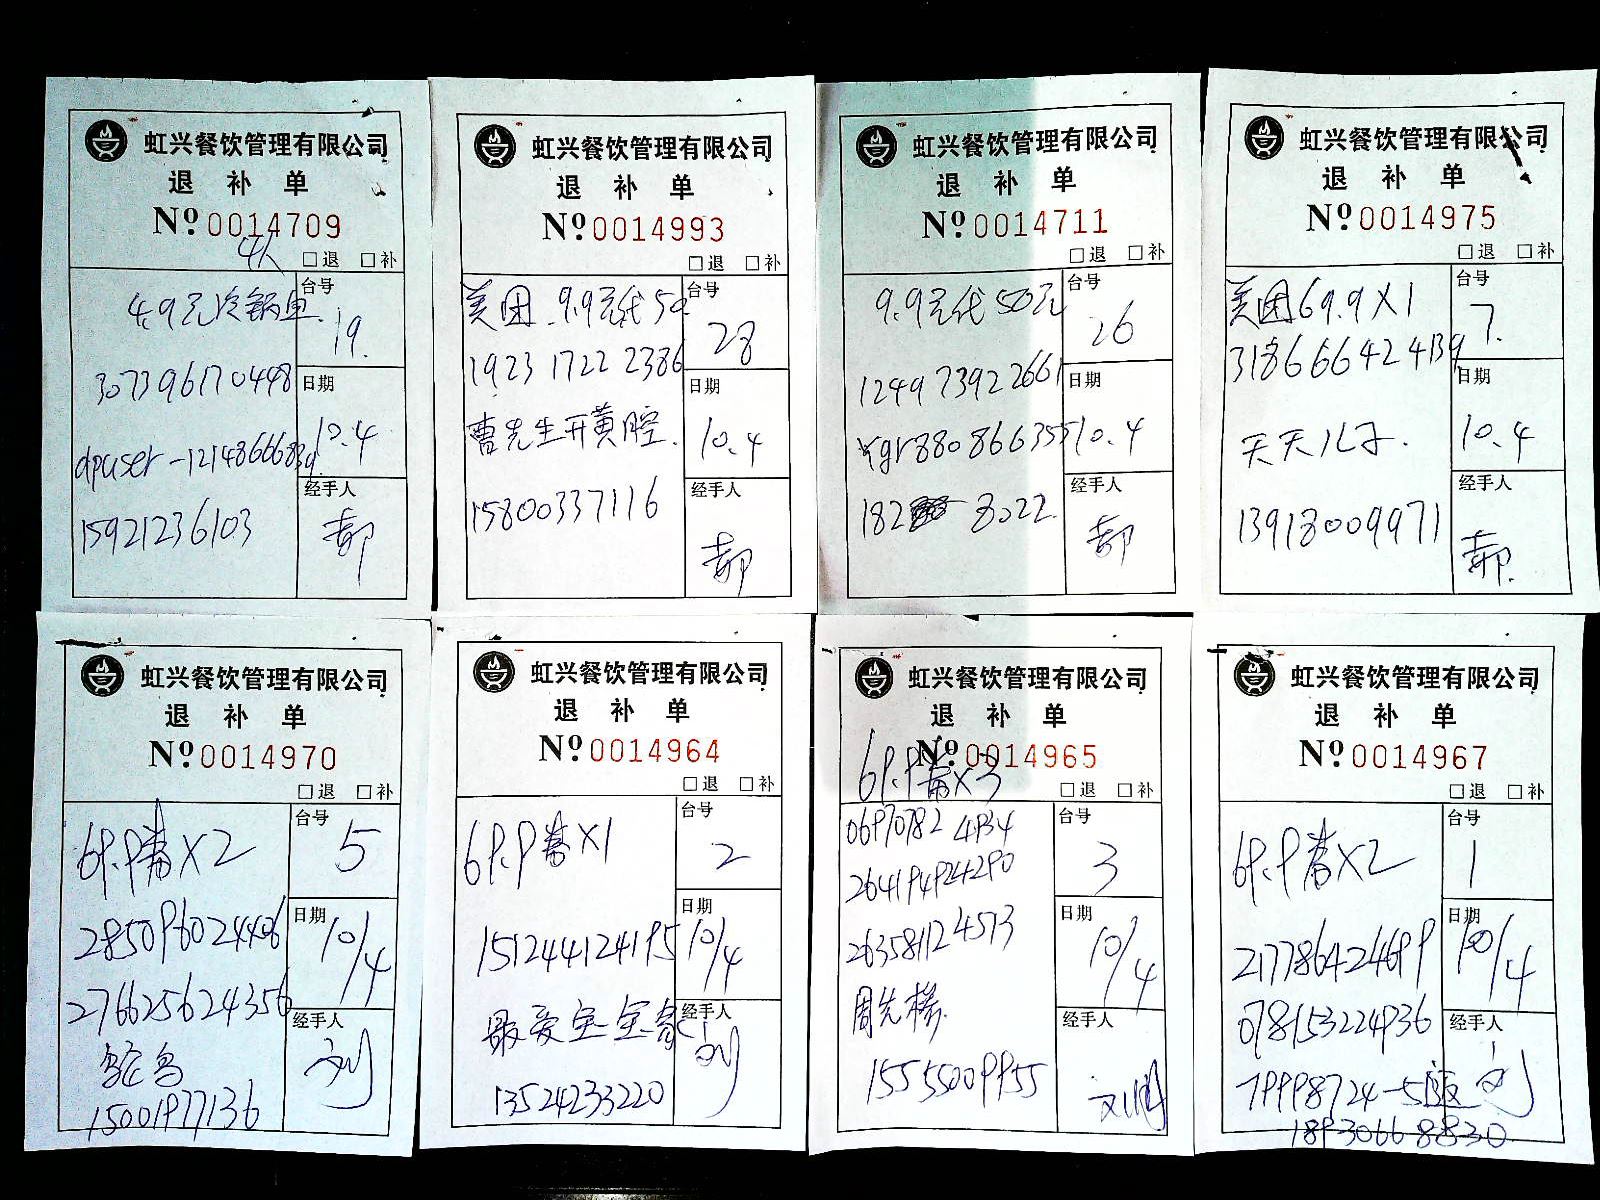 虹兴餐饮管理有限公司
退 补 单
Nº 0014709
4人
□退 □补
4.9元冷锅鱼.
3073961704498
dpuser-12148666839
15921236103
台号
19.
日期
10.4
经手人
郝
虹兴餐饮管理有限公司
退 补 单
Nº 0014993
□退 □补
美团.9.9元代50
1923 1722 2386
曹先生开黄腔.
15800337116
台号
28
日期
10.4
经手人
郝
虹兴餐饮管理有限公司
退 补 单
Nº 0014711
□退 □补
9.9元代50元
1249 7392 2661
182 8022
台号
26
日期
10.4
经手人
郝
虹兴餐饮管理有限公司
退 补 单
Nº 0014975
□退 □补
美团69.9X1
318666424139
天天儿子.
13918009971
台号
7.
日期
10.4
经手人
郝.
虹兴餐饮管理有限公司
退 补 单
Nº 0014970
□退 □补
69.9套X2
285096024406
276625624356
鸵鸟
15001977136
台号
5
日期
10/4
经手人
刘
虹兴餐饮管理有限公司
退 补 单
Nº 0014964
□退 □补
69.9套X1
151244124195
最爱宝宝家
13524233220
台号
2
日期
10/4
经手人
刘
虹兴餐饮管理有限公司
退 补 单
Nº 0014965
69.9套X3
□退 □补
06970782 4934
264194924290
263581124513
周先
15555009955
台号
3
日期
10/4
经手人
刘
虹兴餐饮管理有限公司
退 补 单
Nº 0014967
□退 □补
69.9套X2
217786424699
078153224936
79998724-5
18930668830
台号
1
日期
10/4
经手人
刘